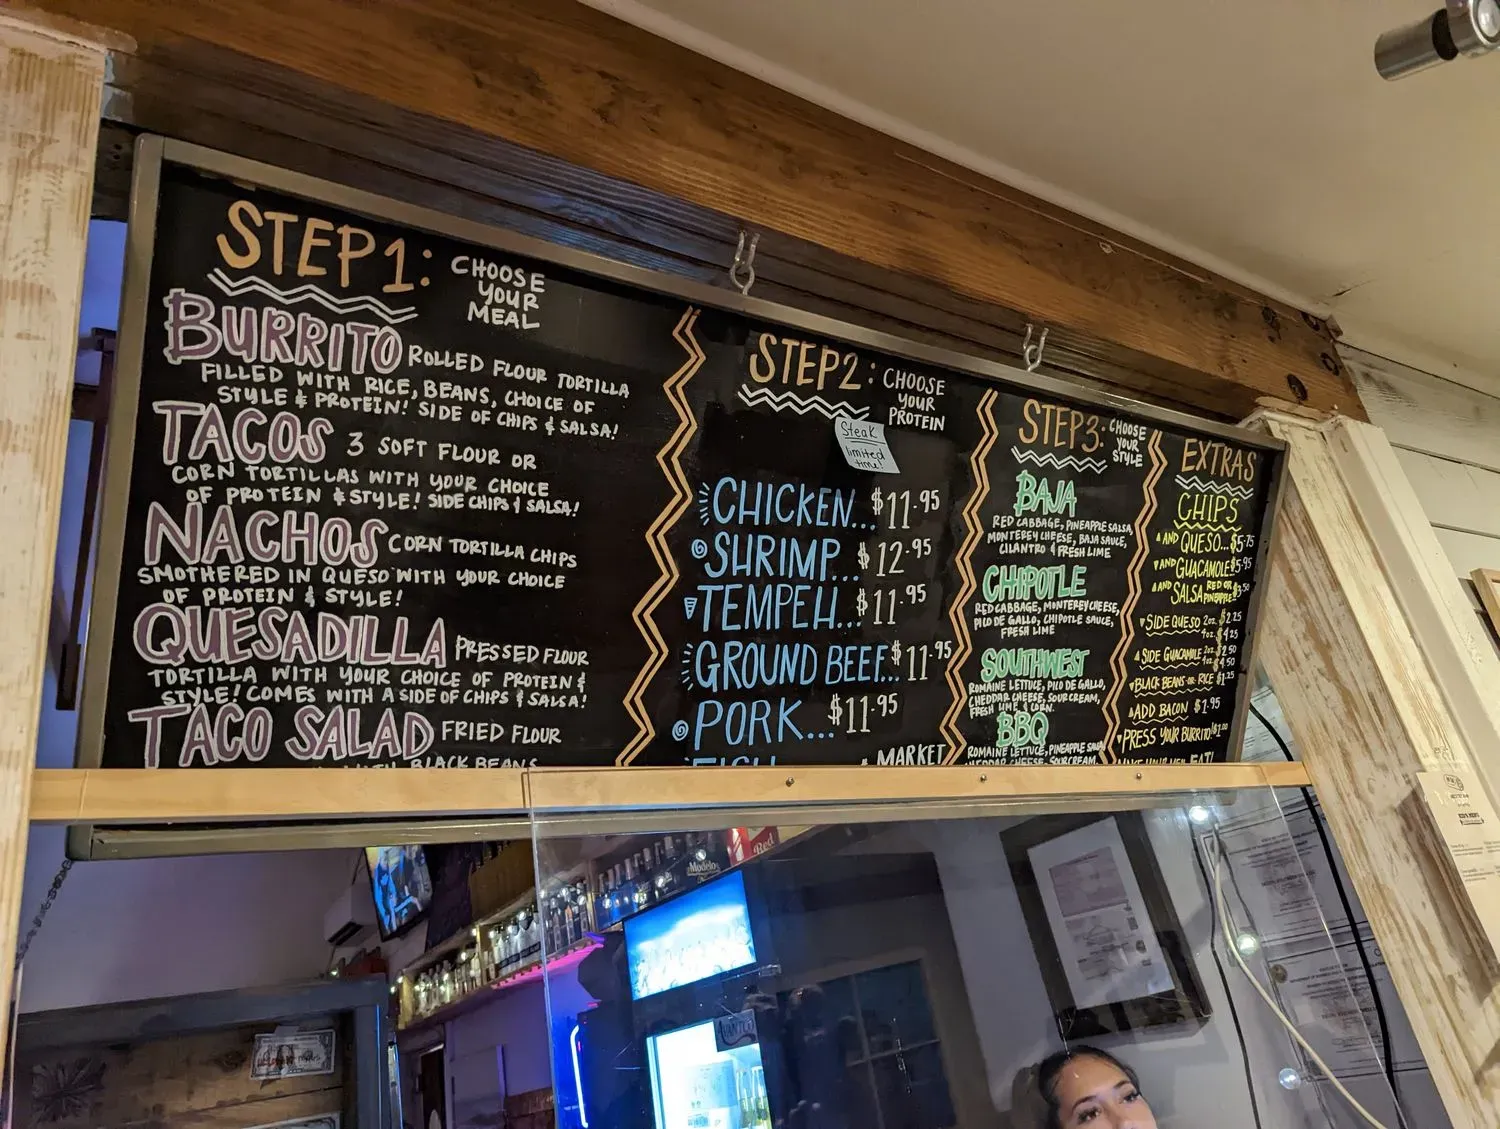 STEP 1: CHOOSE
YOUR
MEAL
BURRITO ROLLED FLOUR TORTILLA
FILLED WITH RICE, BEANS, CHOICE OF
STYLE & PROTEIN! SIDE OF CHIPS & SALSA!
TACOS 3 SOFT FLOUR OR
CORN TORTILLAS WITH YOUR CHOICE
OF PROTEIN & STYLE! SIDE CHIPS & SALSA!
NACHOS CORN TORTILLA CHIPS
SMOTHERED IN QUESO WITH YOUR CHOICE
OF PROTEIN & STYLE!
QUESADILLA PRESSED FLOUR
TORTILLA WITH YOUR CHOICE OF PROTEIN &
STYLE! COMES WITH A SIDE OF CHIPS & SALSA!
TACO SALAD FRIED FLOUR
WITH BLACK BEANS
STEP 2: CHOOSE
YOUR
PROTEIN
Steak
limited
time!
CHICKEN... $11.95
SHRIMP... $12.95
TEMPEH... $11.95
GROUND BEEF... $11.95
PORK... $11.95
FISH MARKET
STEP 3: CHOOSE
YOUR
STYLE
BAJA
RED CABBAGE, PINEAPPLE SALSA,
MONTEREY CHEESE, BAJA SAUCE,
CILANTRO & FRESH LIME
CHIPOTLE
RED CABBAGE, MONTEREY CHEESE,
PICO DE GALLO, CHIPOTLE SAUCE,
FRESH LIME
SOUTHWEST
ROMAINE LETTUCE, PICO DE GALLO,
CHEDDAR CHEESE, SOUR CREAM,
FRESH LIME & CORN.
BBQ
ROMAINE LETTUCE, PINEAPPLE SALSA
CHEDDAR CHEESE, SOUR CREAM
EXTRAS
CHIPS
AND QUESO... $5.75
AND GUACAMOLE $5.95
AND SALSA RED OR PINEAPPLE $3.50
SIDE QUESO 2oz. $2.25
4oz. $4.25
SIDE GUACAMOLE 2oz. $2.50
4oz. $4.50
BLACK BEANS OR RICE $1.25
ADD BACON $1.95
PRESS YOUR BURRITO $1.00
Modelo
Red